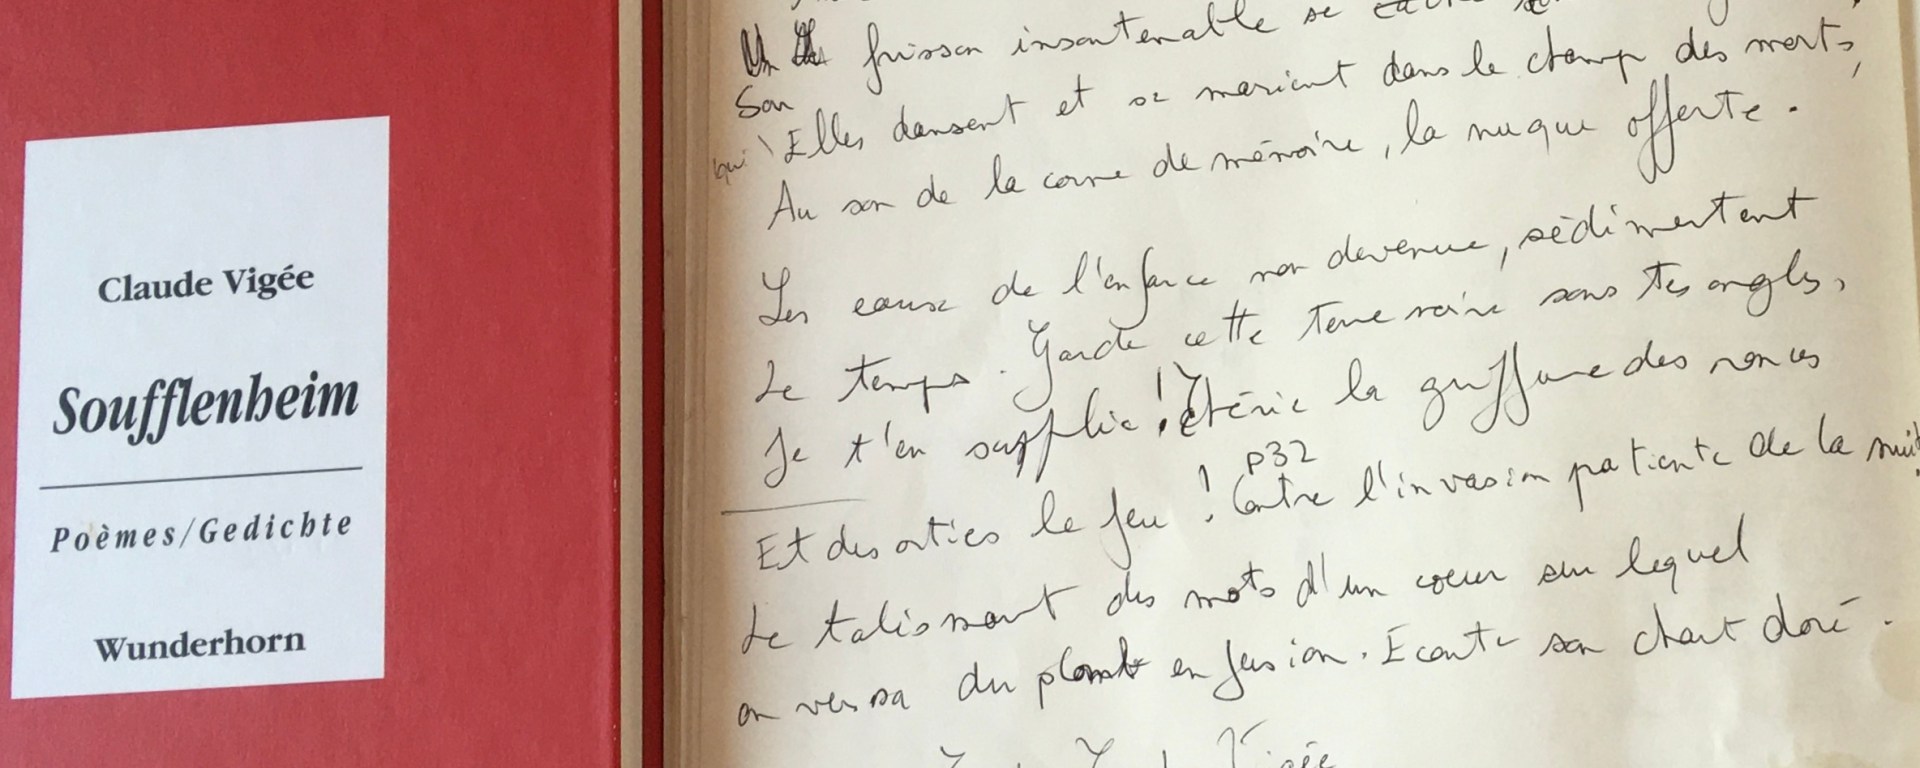 Claude Vigée
Soufflenheim
Poèmes/Gedichte
Wunderhorn
frisson insoutenable se
Son
qui Elles dansent et se marient dans le champ des morts,
Au son de la corne de mémoire, la nuque offerte.
Les eaux de l'enfance non devenue, sédimentent
Le temps. Garde cette terre noire sous tes ongles,
Je t'en supplie! Chéris la griffure des ronces
Et des orties le feu! Contre l'invasion patiente de la nuit
p32
Le talismant des mots d'un coeur sur lequel
on versa du plomb en fusion. Ecoute son chant doré.
Vigée